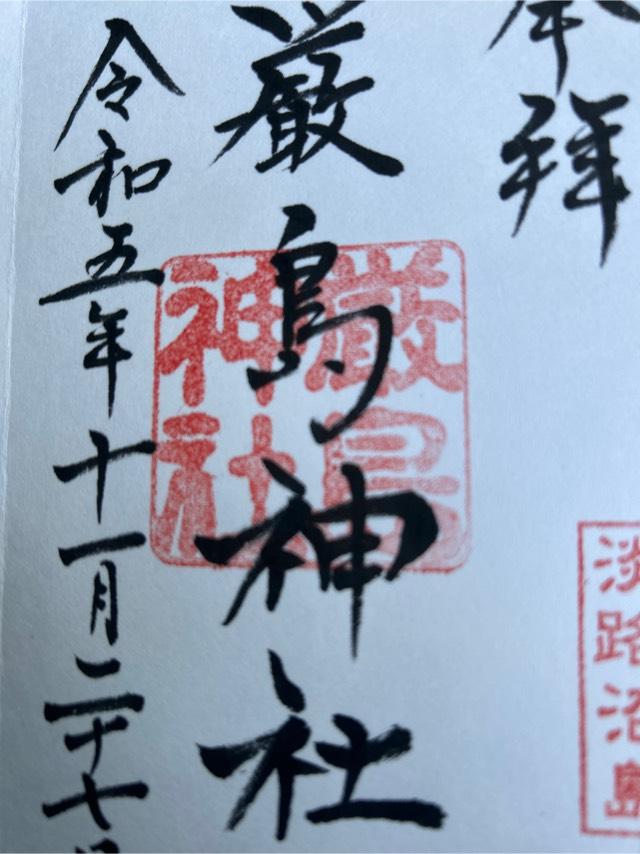 奉拝
淡路沼島
厳島神社
厳島神社
令和五年十一月二十七日